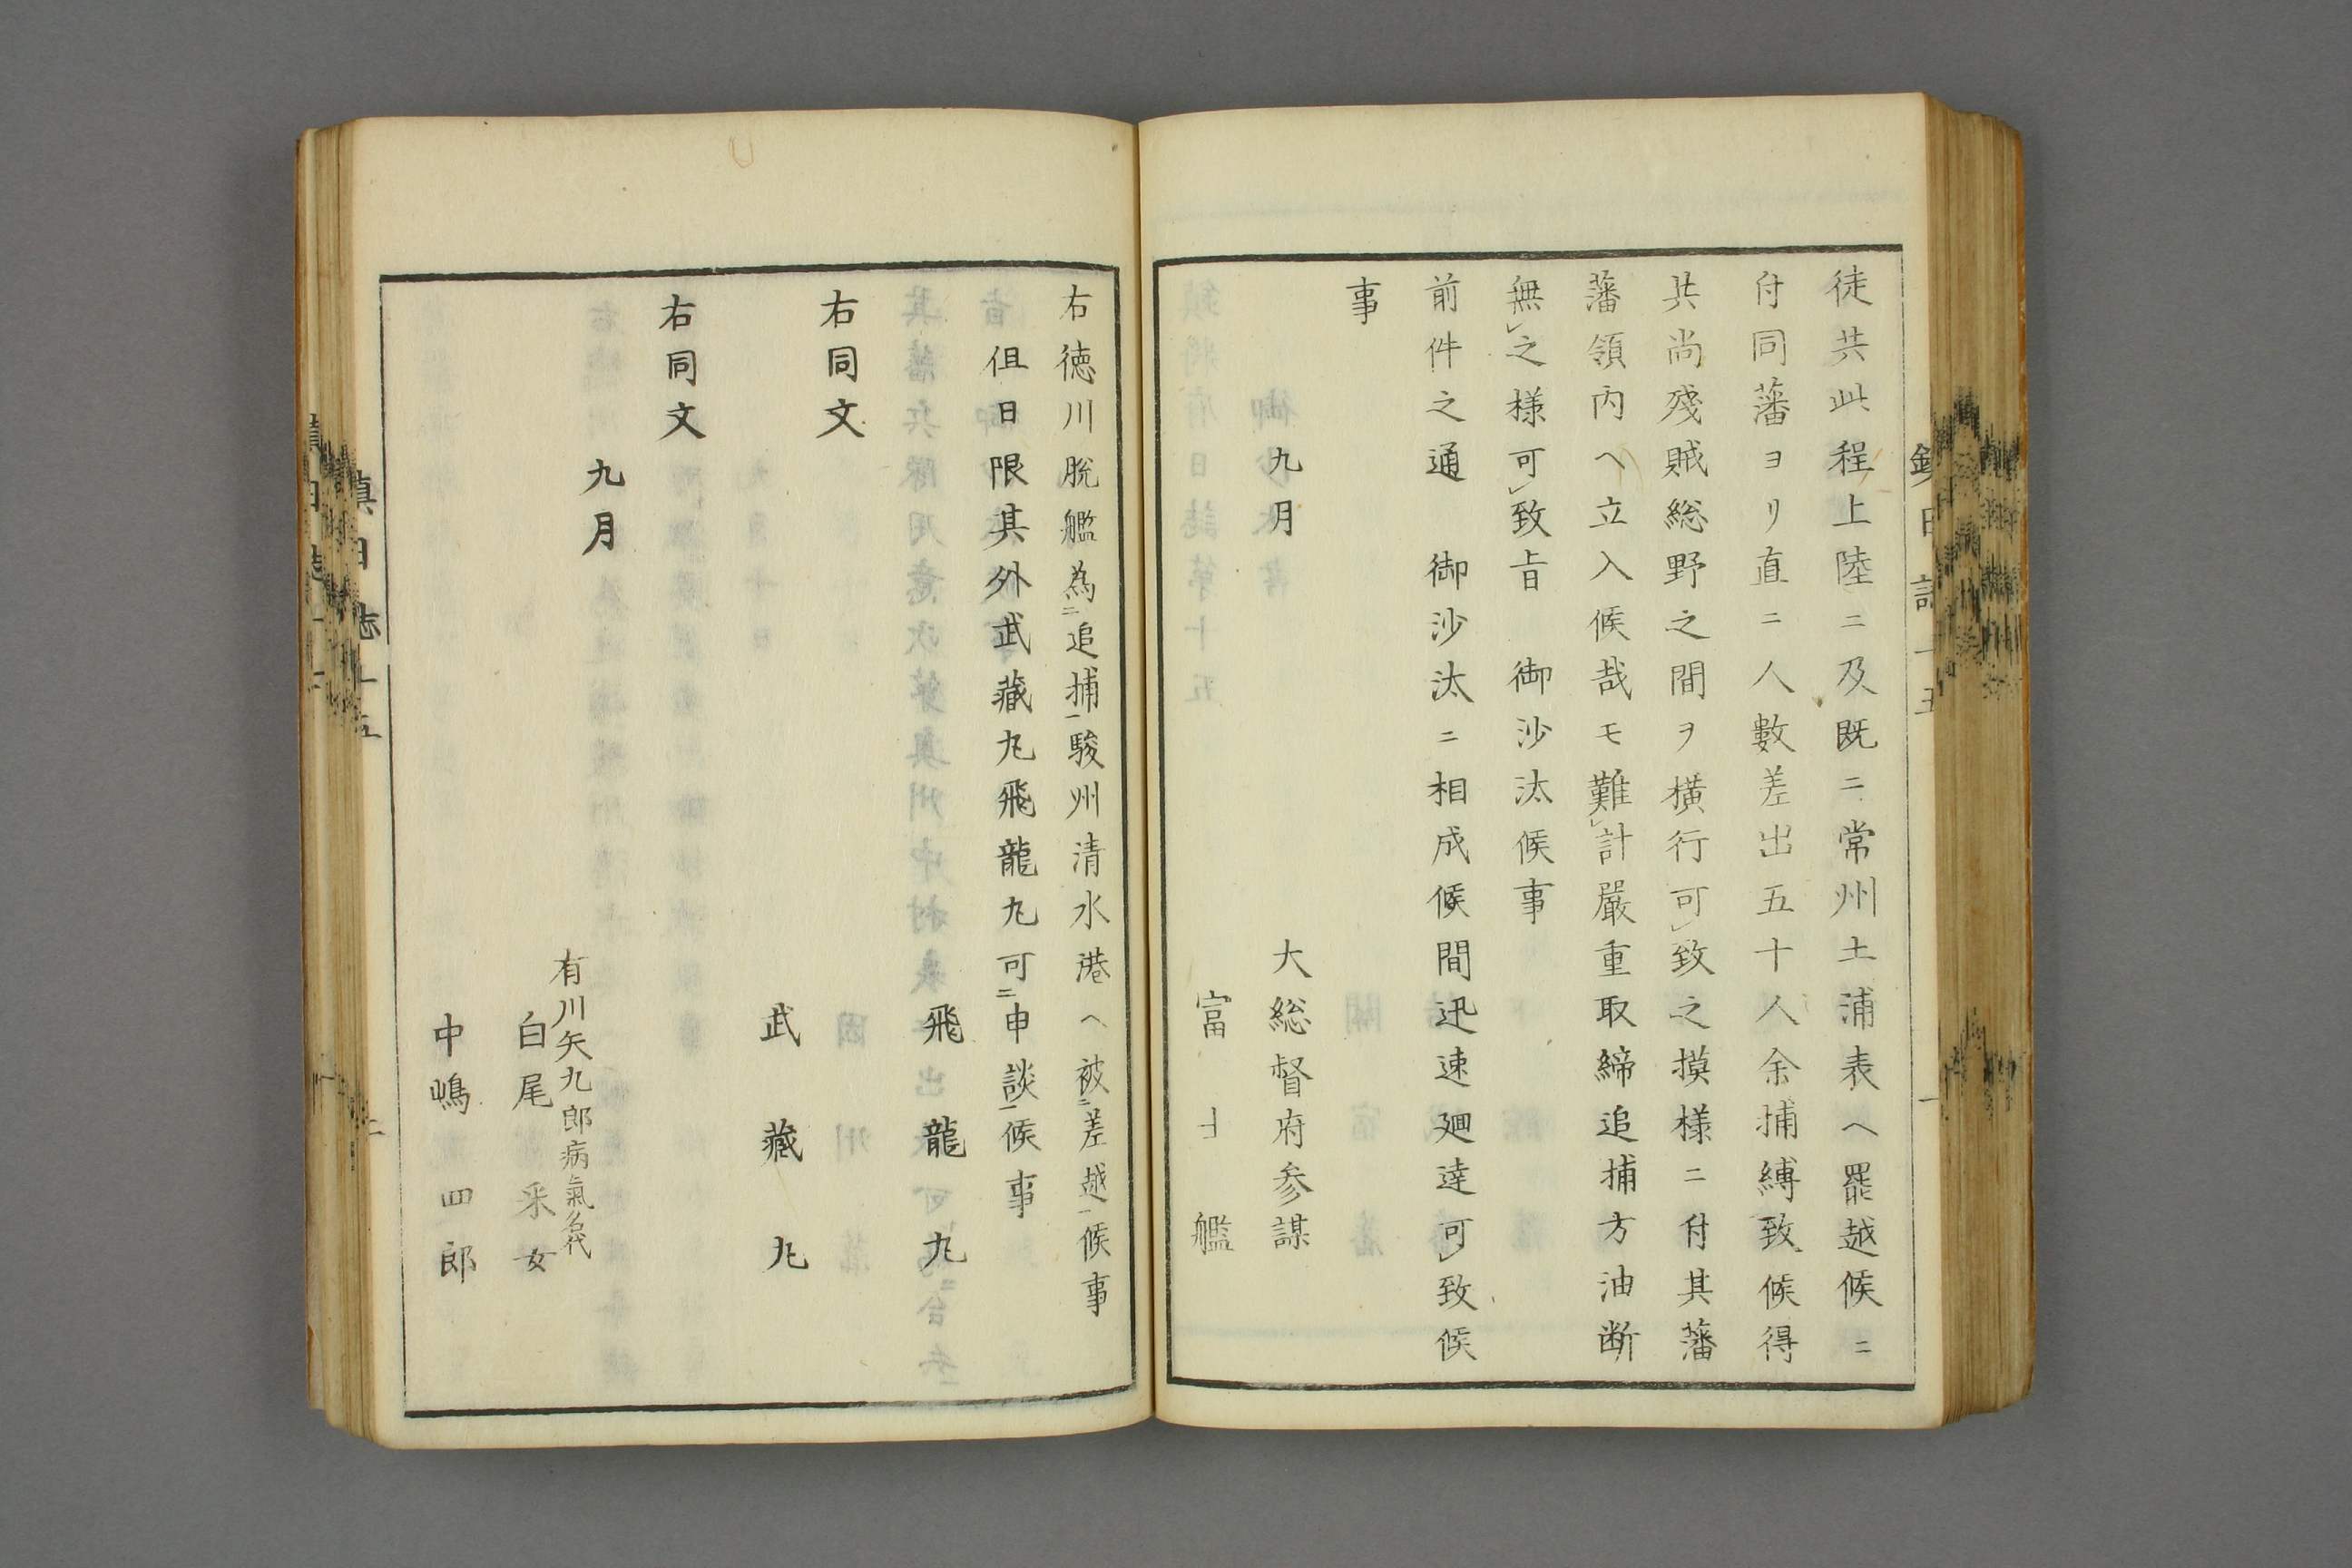 徒共此程上陸ニ及既ニ常州土浦表ヘ罷越候ニ
付同藩ヨリ直ニ人數差出五十人余捕縛致候得
共尚殘賊総野之間ヲ横行可致之摸樣ニ付其藩
藩領内ヘ立入候哉モ難計嚴重取締追捕方油断
無之様可致旨　御沙汰候事
前件之通　御沙汰ニ相成候間迅速廻達可致候
事
九月
大総督府参謀
富士艦
右徳川脱艦為ニ追捕一駿州清水港ヘ被ニ差越一候事
但日限其外武藏丸飛龍丸可ニ申談一候事
飛龍丸
右同文
武藏丸
右同文
九月
有川矢九郎病氣名代
白尾采女
中嶋四郎